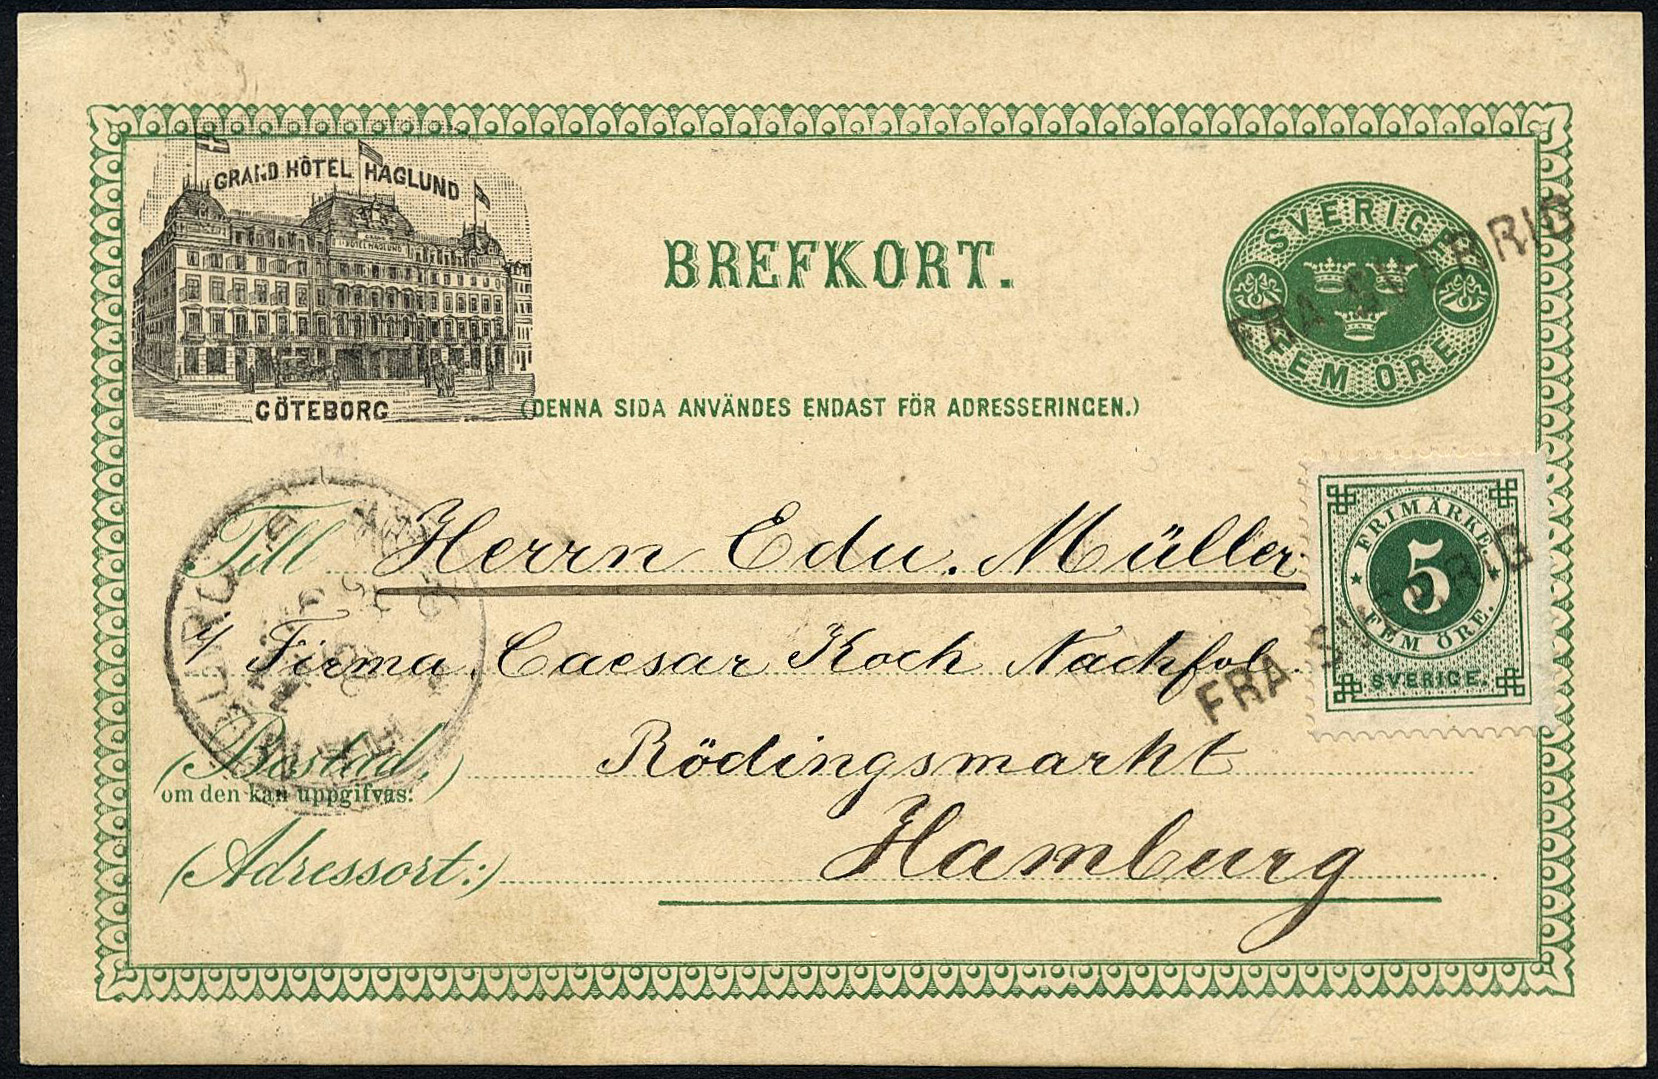 GRAND HÔTEL HAGLUND
GRAND
HÔTEL HAGLUND
GÖTEBORG
BREFKORT.
SVERIGE
FEM ÖRE
FRA SVERRIG
(DENNA SIDA ANVÄNDES ENDAST FÖR ADRESSERINGEN.)
FRIMÄRKE.
5
FEM ÖRE.
SVERIGE.
FRA SVERRIG
HAMBURG
Till Herrn Edu. Müller
Firma Caesar Koch Nachfol.
(Bostad,) Rödingsmarkt
om den kan uppgifvas:
Hamburg
(Adressort:)